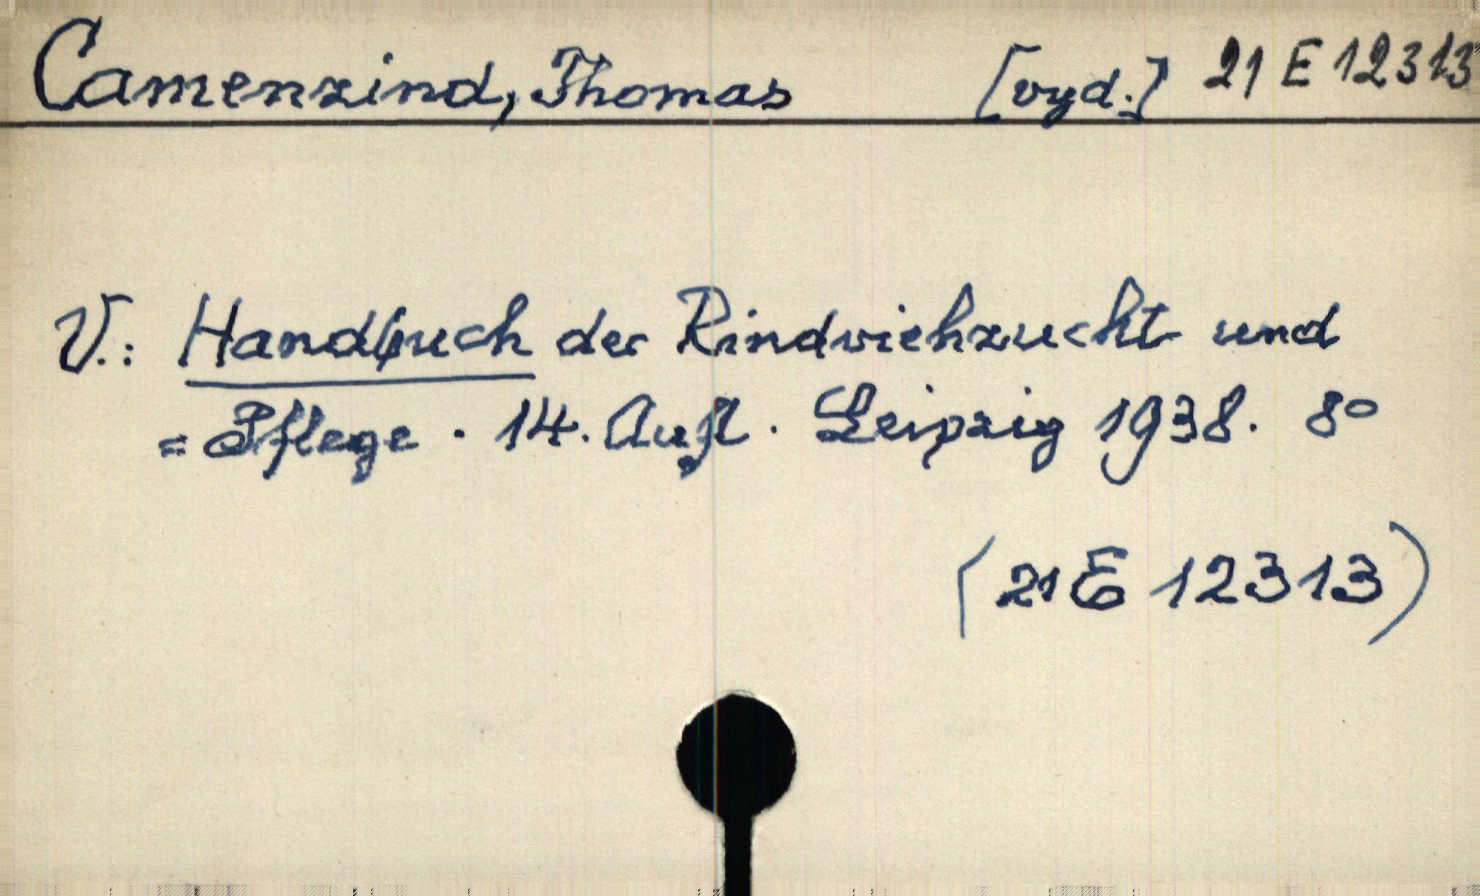 Camenzind, Thomas [vyd.] 21 E 12313
V.: Handbuch der Rindviehzucht und
= Pflege. 14. Aufl. Leipzig 1938. 8°
(21 E 12313)